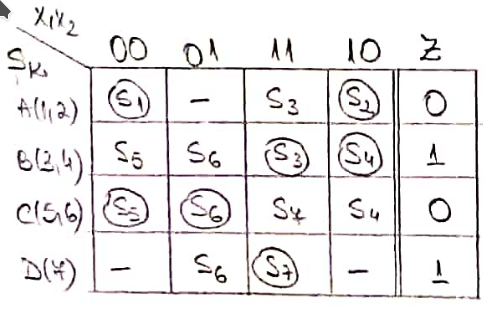 X₁X₂ 00 01 11 10 Z
Sₖ
A(1,2) S₁ – S₃ S₂ 0
B(3,4) S₅ S₆ S₃ S₄ 1
C(5,6) S₅ S₆ S₇ S₄ 0
D(7) – S₆ S₇ – 1